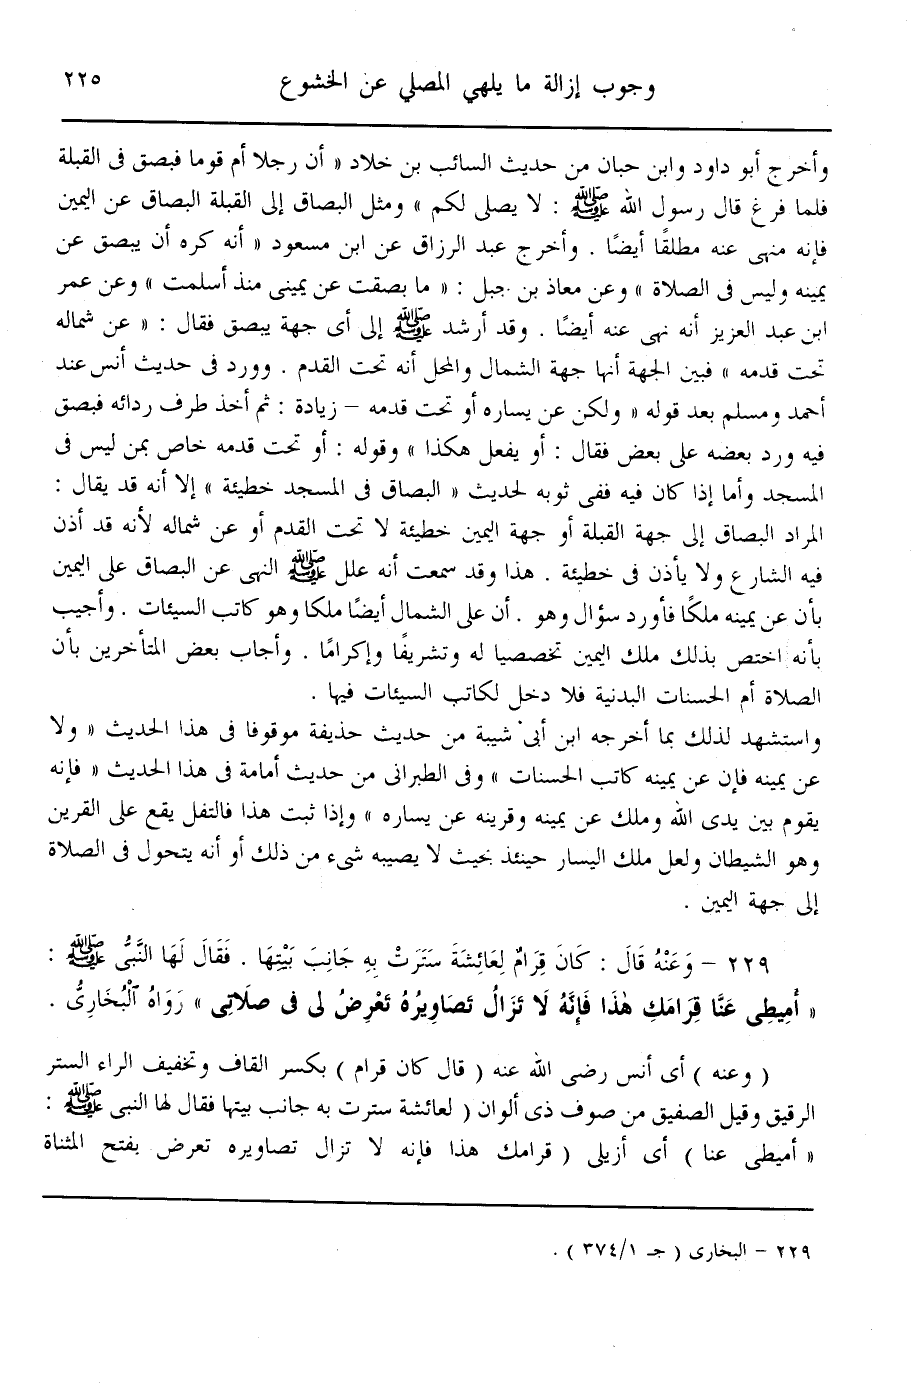 وجوب إزالة ما يلهي المصلي عن الخشوع ٢٢٥
وأخرج أبو داود وابن حبان من حديث السائب بن خلاد « أن رجلا أم قوما فبصق فى القبلة
فلما فرغ قال رسول الله ﷺ : لا يصلى لكم » ومثل البصاق إلى القبلة البصاق عن اليمين
فإنه منهى عنه مطلقًا أيضًا . وأخرج عبد الرزاق عن ابن مسعود « أنه كره أن يبصق عن
يمينه وليس فى الصلاة » وعن معاذ بن جبل : « ما بصقت عن يمينى منذ أسلمت » وعن عمر
ابن عبد العزيز أنه نهى عنه أيضًا . وقد أرشد ﷺ إلى أى جهة يبصق فقال : « عن شماله
تحت قدمه » فبين الجهة أنها جهة الشمال والمحل أنه تحت القدم . وورد فى حديث أنس عند
أحمد ومسلم بعد قوله « ولكن عن يساره أو تحت قدمه – زيادة : ثم أخذ طرف ردائه فبصق
فيه ورد بعضه على بعض فقال : أو يفعل هكذا » وقوله : أو تحت قدمه خاص بمن ليس فى
المسجد وأما إذا كان فيه ففى ثوبه لحديث « البصاق فى المسجد خطيئة » إلا أنه قد يقال :
المراد البصاق إلى جهة القبلة أو جهة اليمين خطيئة لا تحت القدم أو عن شماله لأنه قد أذن
فيه الشارع ولا يأذن فى خطيئة . هذا وقد سمعت أنه علل ﷺ النهى عن البصاق على اليمين
بأن عن يمينه ملكًا فأورد سؤال وهو . أن على الشمال أيضًا ملكا وهو كاتب السيئات . وأجيب
بأنه اختص بذلك ملك اليمين تخصصيا له وتشريفًا وإكرامًا . وأجاب بعض المتأخرين بأن
الصلاة أم الحسنات البدنية فلا دخل لكاتب السيئات فيها .
واستشهد لذلك بما أخرجه ابن أبى شيبة من حديث حذيفة موقوفا فى هذا الحديث « ولا
عن يمينه فإن عن يمينه كاتب الحسنات » وفى الطبرانى من حديث أمامة فى هذا الحديث « فإنه
يقوم بين يدى الله وملك عن يمينه وقرينه عن يساره » وإذا ثبت هذا فالتفل يقع على القرين
وهو الشيطان ولعل ملك اليسار حينئذ بحيث لا يصيبه شىء من ذلك أو أنه يتحول فى الصلاة
إلى جهة اليمين .
٢٢٩ – وَعَنْهُ قَالَ : كَانَ قِرَامٌ لِعَائِشَةَ سَتَرَتْ بِهِ جَانِبَ بَيْتِهَا . فَقَالَ لَهَا النَّبىُّ ﷺ :
« أَمِيطِى عَنَّا قِرَامَكِ هٰذَا فَإِنَّهُ لَا تَزَالُ تَصَاوِيرُهُ تَعْرِضُ لِى فى صلَاتِى » رَوَاهُ الْبُخَارِىُّ .
( وعنه ) أى أنس رضى الله عنه ( قال كان قرام ) بكسر القاف وتخفيف الراء الستر
الرقيق وقيل الصفيق من صوف ذى ألوان ( لعائشة سترت به جانب بيتها فقال لها النبى ﷺ :
« أميطى عنا ) أى أزيلى ( قرامك هذا فإنه لا تزال تصاويره تعرض بفتح المثناة
٢٢٩ – البخارى ( جـ ٣٧٤/١ ) .